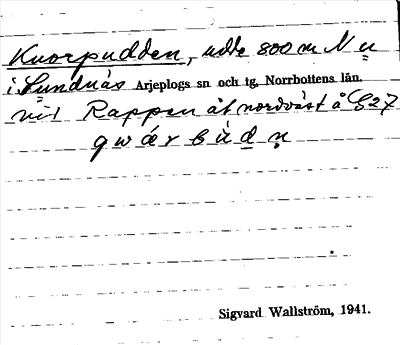 Kvorpudden, udde 800 m N u
i Sundnäs Arjeplogs sn och tg, Norrbottens län.
vid Rappen åt nordväst å G27
qwárbúdn
Sigvard Wallström, 1941.